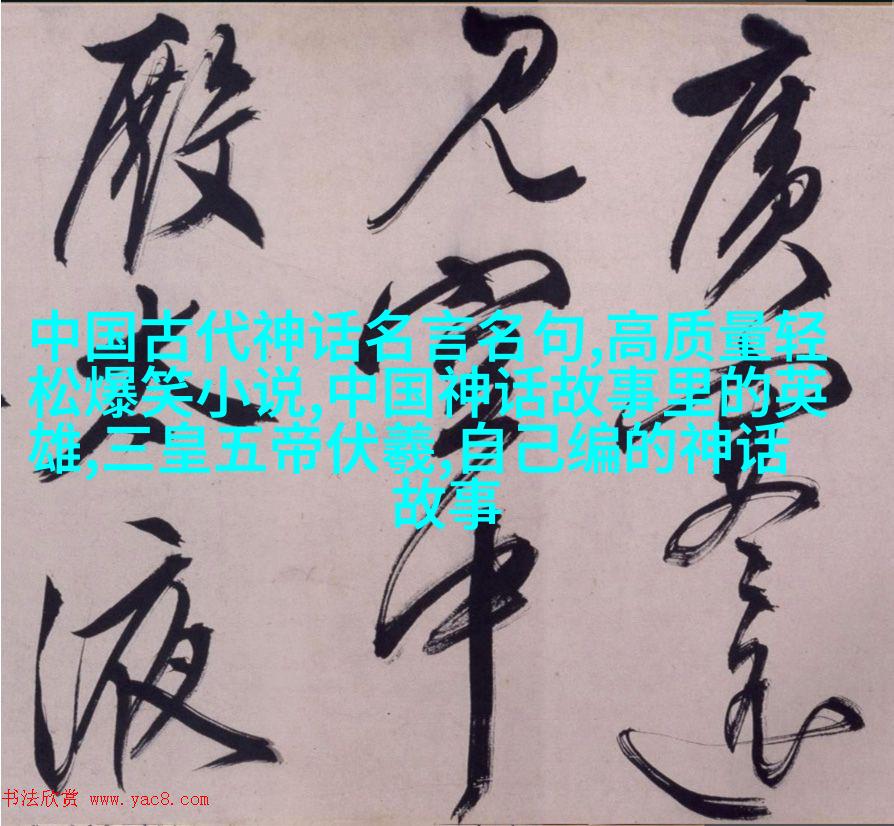 中国古代神话名言名句,高质量轻
松爆笑小说,中国神话故事里的英
雄,三皇五帝伏羲,自己编的神话
故事
廣
中
殿太液
书法欣赏 www.yac8.com